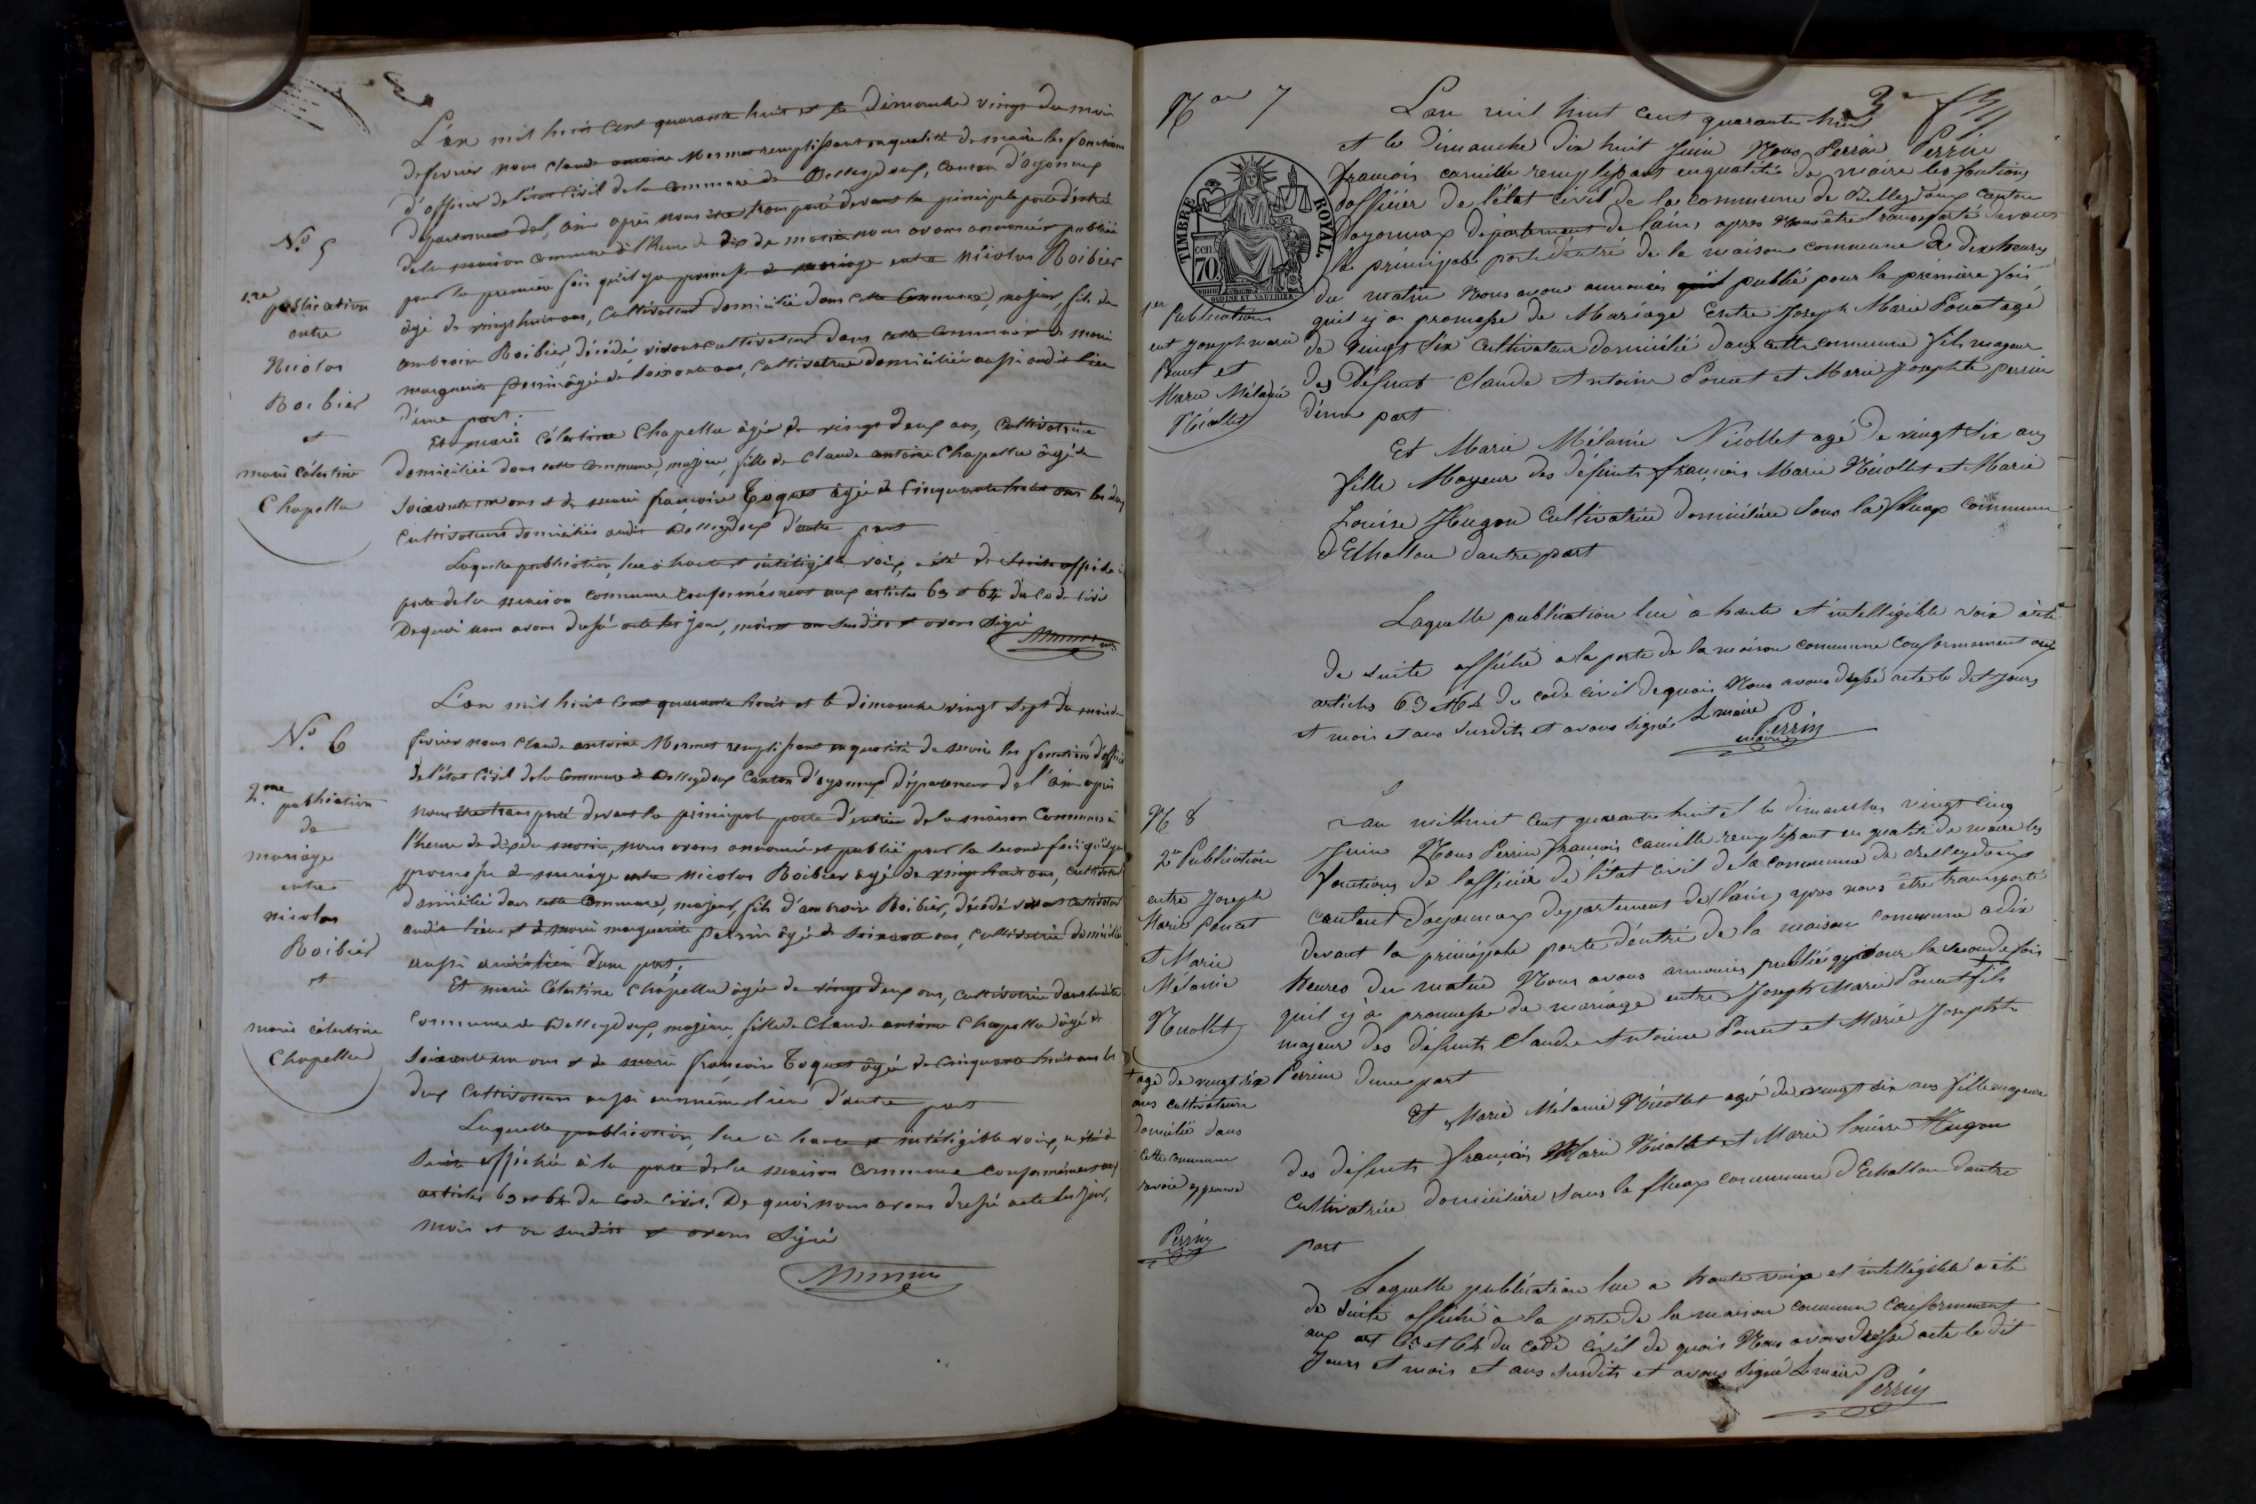 L'an mil huit cent quarante huit et le Dimanche vingt du mois
de fevrier nous Claude antoine Mermet remplissant en qualité de maire les fonctions
d'officier de l'état civil de la commune de Belleydoux, canton d'oyonnax
département de l'ain après nous être transporté devant la principale porte d'entrée
de la maison commune à l'heure de dix du matin nous avons annoncé et publié
pour la première fois qu'il y a promesse de mariage entre Nicolas Boibier
âgé de vingt huit ans, Cultivateur domicilié dans cette Commune, majeur, fils de
ambroise Boibier, décédé vivant cultivateur dans cette commune et de marie
marguerite Perrin âgée de soixante ans, Cultivatrice domiciliée aussi audit lieu
d'une part;
Et marie Célestine Chapellu âgée de vingt deux ans, Cultivatrice
domiciliée dans cette Commune, majeure, fille de Claude antoine Chapellu âgé de
soixante un ans et de marie françoise Toquet âgée de Cinquante huit ans les deux
Cultivateurs domiciliés audit Belleydoux d'autre part
Laquelle publication, lue à haute et intelligible voix, a été de Suite affichée à
porte de la maison commune conformément aux articles 63 et 64 du Code Civil
De quoi nous avons dressé acte les jour, mois et an susdits et avons Signé
Mermet
N.° 5
1.re publication
entre
Nicolas
Boibier
et
marie célestine
Chapellu
L'an mil huit Cent quarante huit et le dimanche vingt Sept du mois de
fevrier nous Claude antoine Mermet remplissant en qualité de maire les fonctions d'officier
de l'état Civil de la Commune de Belleydoux Canton d'oyonnax Département de l'ain après
nous être transporté devant la principale porte d'entrée de la maison Commune à
l'heure de dix du matin, nous avons annoncé et publié pour la seconde fois qu'il y a
promesse de mariage entre Nicolas Boibier âgé de vingt huit ans, Cultivateur
Domicilié dans cette Commune, majeur, fils d'ambroise Boibier, décédé vivant cultivateur
audit lieu et de marie marguerite Perrin âgée de Soixante ans, Cultivatrice domiciliée
aussi audit lieu d'une part;
Et marie Célestine Chapellu âgée de vingt deux ans, Cultivatrice dans ladite
Commune de Belleydoux, majeure, fille de Claude antoine Chapellu âgé de
Soixante un ans et de marie françoise Toquet âgée de Cinquante huit ans les
deux Cultivateurs aussi au même lieu d'autre part
Laquelle publication, lue à haute et intelligible voix, a été de
Suite affichée à la porte de la maison Commune conformément aux
articles 63 et 64 du Code Civil. De quoi nous avons dressé acte les jour,
mois et an susdits et avons Signé
Mermet
N.° 6
2.me publication
de
mariage
entre
nicolas
Boibier
et
marie célestine
Chapellu
3e
N.ro 7
TIMBRE ROYAL
70
1er Publication
ent Joseph marie
Poncet et
Marie Mélanie
Nicollet
L'an mil huit cent quarante huit
et le Dimanche dix huit Juin Nous Perrin Perrin
françois camille remplissant en qualité de maire les fonctions
d'officier de l'état civil de la commune de Belleydoux canton
d'oyonnax département de l'ain, apres Nous être transporté devant
la principale porte d'entré de la maison commune à dix heures
du matin Nous avons annoncés publié pour la première fois
quil y a promesse de Mariage Entre Joseph Marie Poncet agé
de vingt Six Cultivateur domicilié dans cette commune fils mageur
des défunt Claude Antoine Poncet et Marie Josephte Perrin
d'une part
Et Marie Mélanie Nicollet agé de vingt Six ans
fille Mageur des défunts françois Marie Nicollet et Marie
Louise Hugon Cultivatrice domicilière Sous la fleux Commune
d'Echallon d'autre part
Laquelle publication lue à haute et intelligible voix à été
de suite affiché a la porte de la maison commune conformement aux
articles 63 et 64 du code civil de quois Nous avons dressé acte le dit jours
et mois et ans Susdits et avons signée L maire
Perrin
maire
N 8
2e Publication
entre Joseph
Marie Poncet
et Marie
Mélanie
Nicollet
+ agé de vingt six
ans cultivateur
domicilié dans
cette commune
Perrin
L'an mil huit cent quarante huit et le dimanche vingt cinq
Juin Nous Perrin françois camille remplissant en qualité de maire les
fonctions de l'officier de l'état civil de la commune de Belleydoux
canton d'oyonnax departement de l'ain, apres nous être transporté
devant la principale porte d'entré de la maison commune a dix
heures du matin Nous avons annoncés publié pour la seconde fois
quil y a promesse de mariage entre Joseph Marie Poncet + fils
majeur des défunts Claude Antoine Poncet et Marie Josephte
Perrin d'une part
Et Marie Mélanie Nicollet agé de vingt six ans fille mageure
des défunts françois Marie Nicollet et Marie louise Hugon
Cultivatrice domicilière sous la fleux commune d'Echallon d'autre
part
Laquelle publication lue a haute voix et intelligible a été
de Suite affiché à la porte de la maison commune conformement
aux art 63 et 64 du code civil de quois Nous avons dressé acte le dit
Jours et mois et ans susdits et avons signé L maire
Perrin